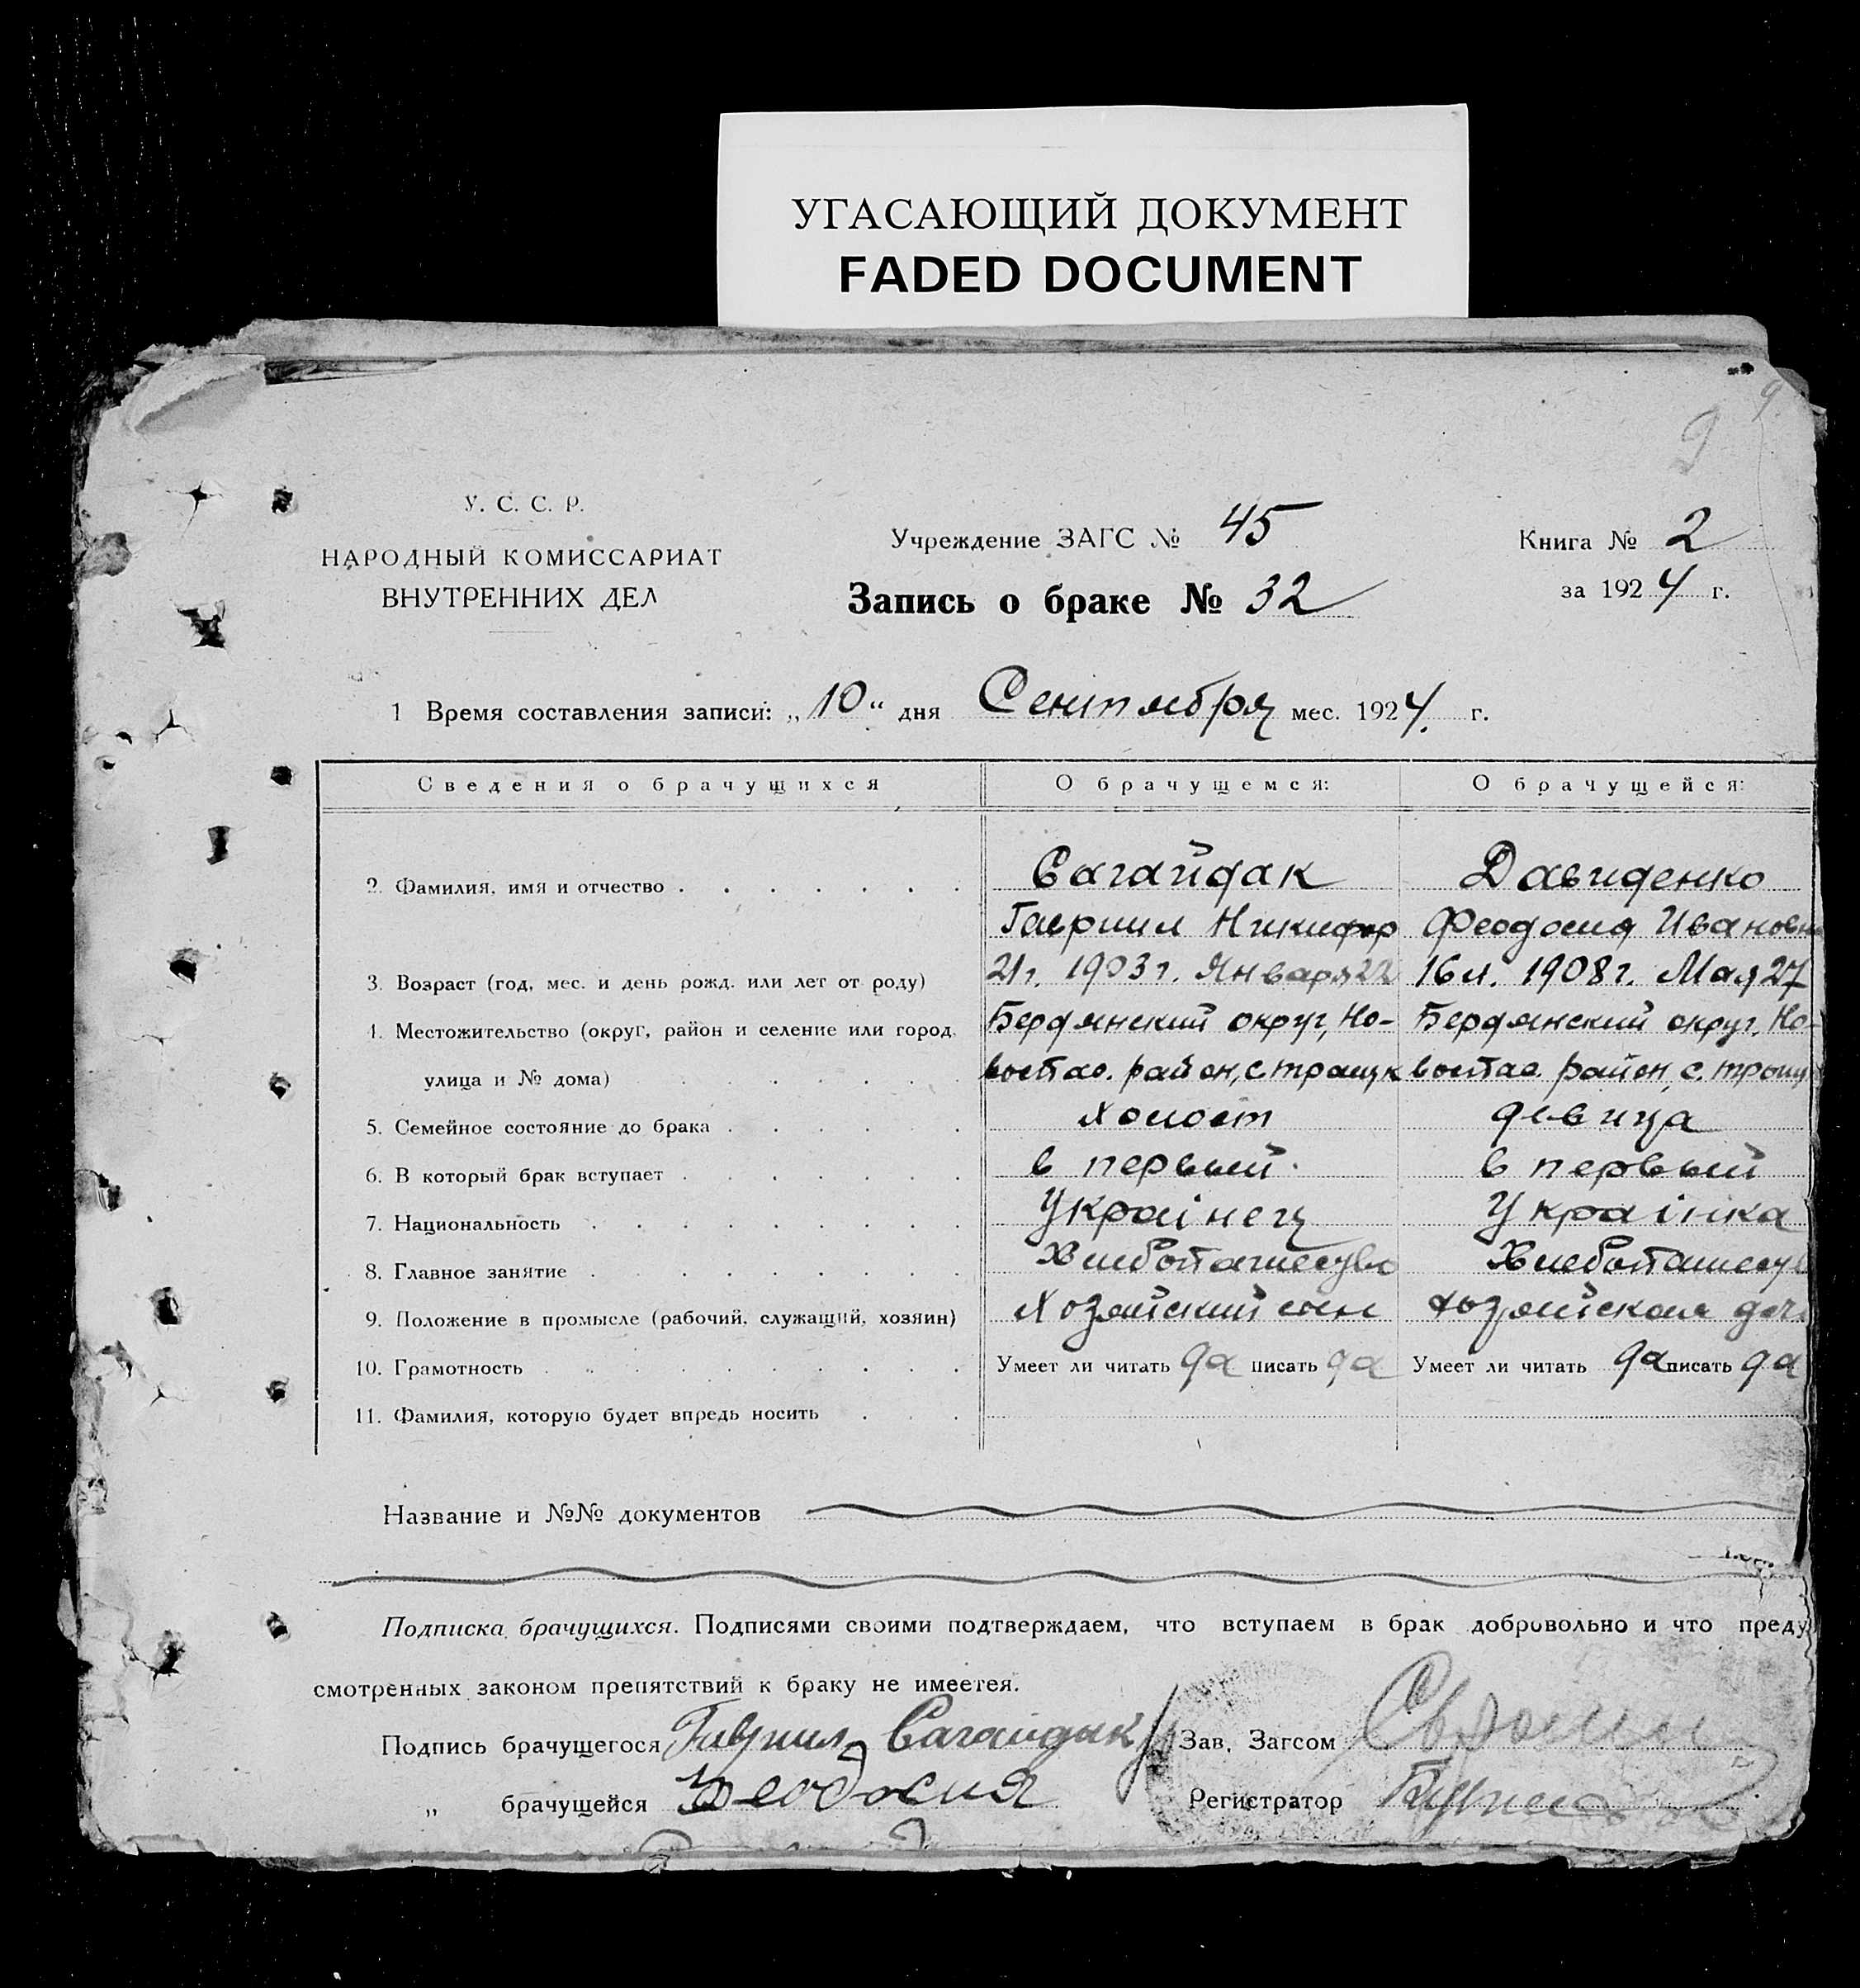 УГАСАЮЩИЙ ДОКУМЕНТ
FADED DOCUMENT
9
9
У. С. С. Р.
НАРОДНЫЙ КОМИССАРИАТ
ВНУТРЕННИХ ДЕЛ
Учреждение ЗАГС № 45
Запись о браке № 32
Книга № 2
за 1924 г.
1 Время составления записи: „10“ дня Сентября мес. 1924 г.
Сведения о брачущихся О брачущемся: О брачущейся:
2. Фамилия, имя и отчество Сагайдак Давиденко
Гавриил Никифор Феодосия Ивановн
3. Возраст (год, мес. и день рожд. или лет от роду) 21г. 1903г. Января 22 16л. 1908г. Мая 27
4. Местожительство (округ, район и селение или город, Бердянский округ, Но- Бердянский округ, Но-
улица и № дома) воспас. район, с. троицк воспас. район, с. троиц
5. Семейное состояние до брака холост девица
6. В который брак вступает в первый в первый
7. Национальность Украінец Украінка
8. Главное занятие Хлебопашество Хлебопашеств
9. Положение в промысле (рабочий, служащий, хозяин) Хозяйский сын хозяйская доч
10. Грамотность Умеет ли читать да писать да Умеет ли читать да писать да
11. Фамилия, которую будет впредь носить
Название и №№ документов
Подписка брачущихся. Подписями своими подтверждаем, что вступаем в брак добровольно и что преду
смотренных законом препятствий к браку не имеется.
Подпись брачущегося Гавриил Сагайдак Зав. Загсом
„ брачущейся Феодосия Регистратор